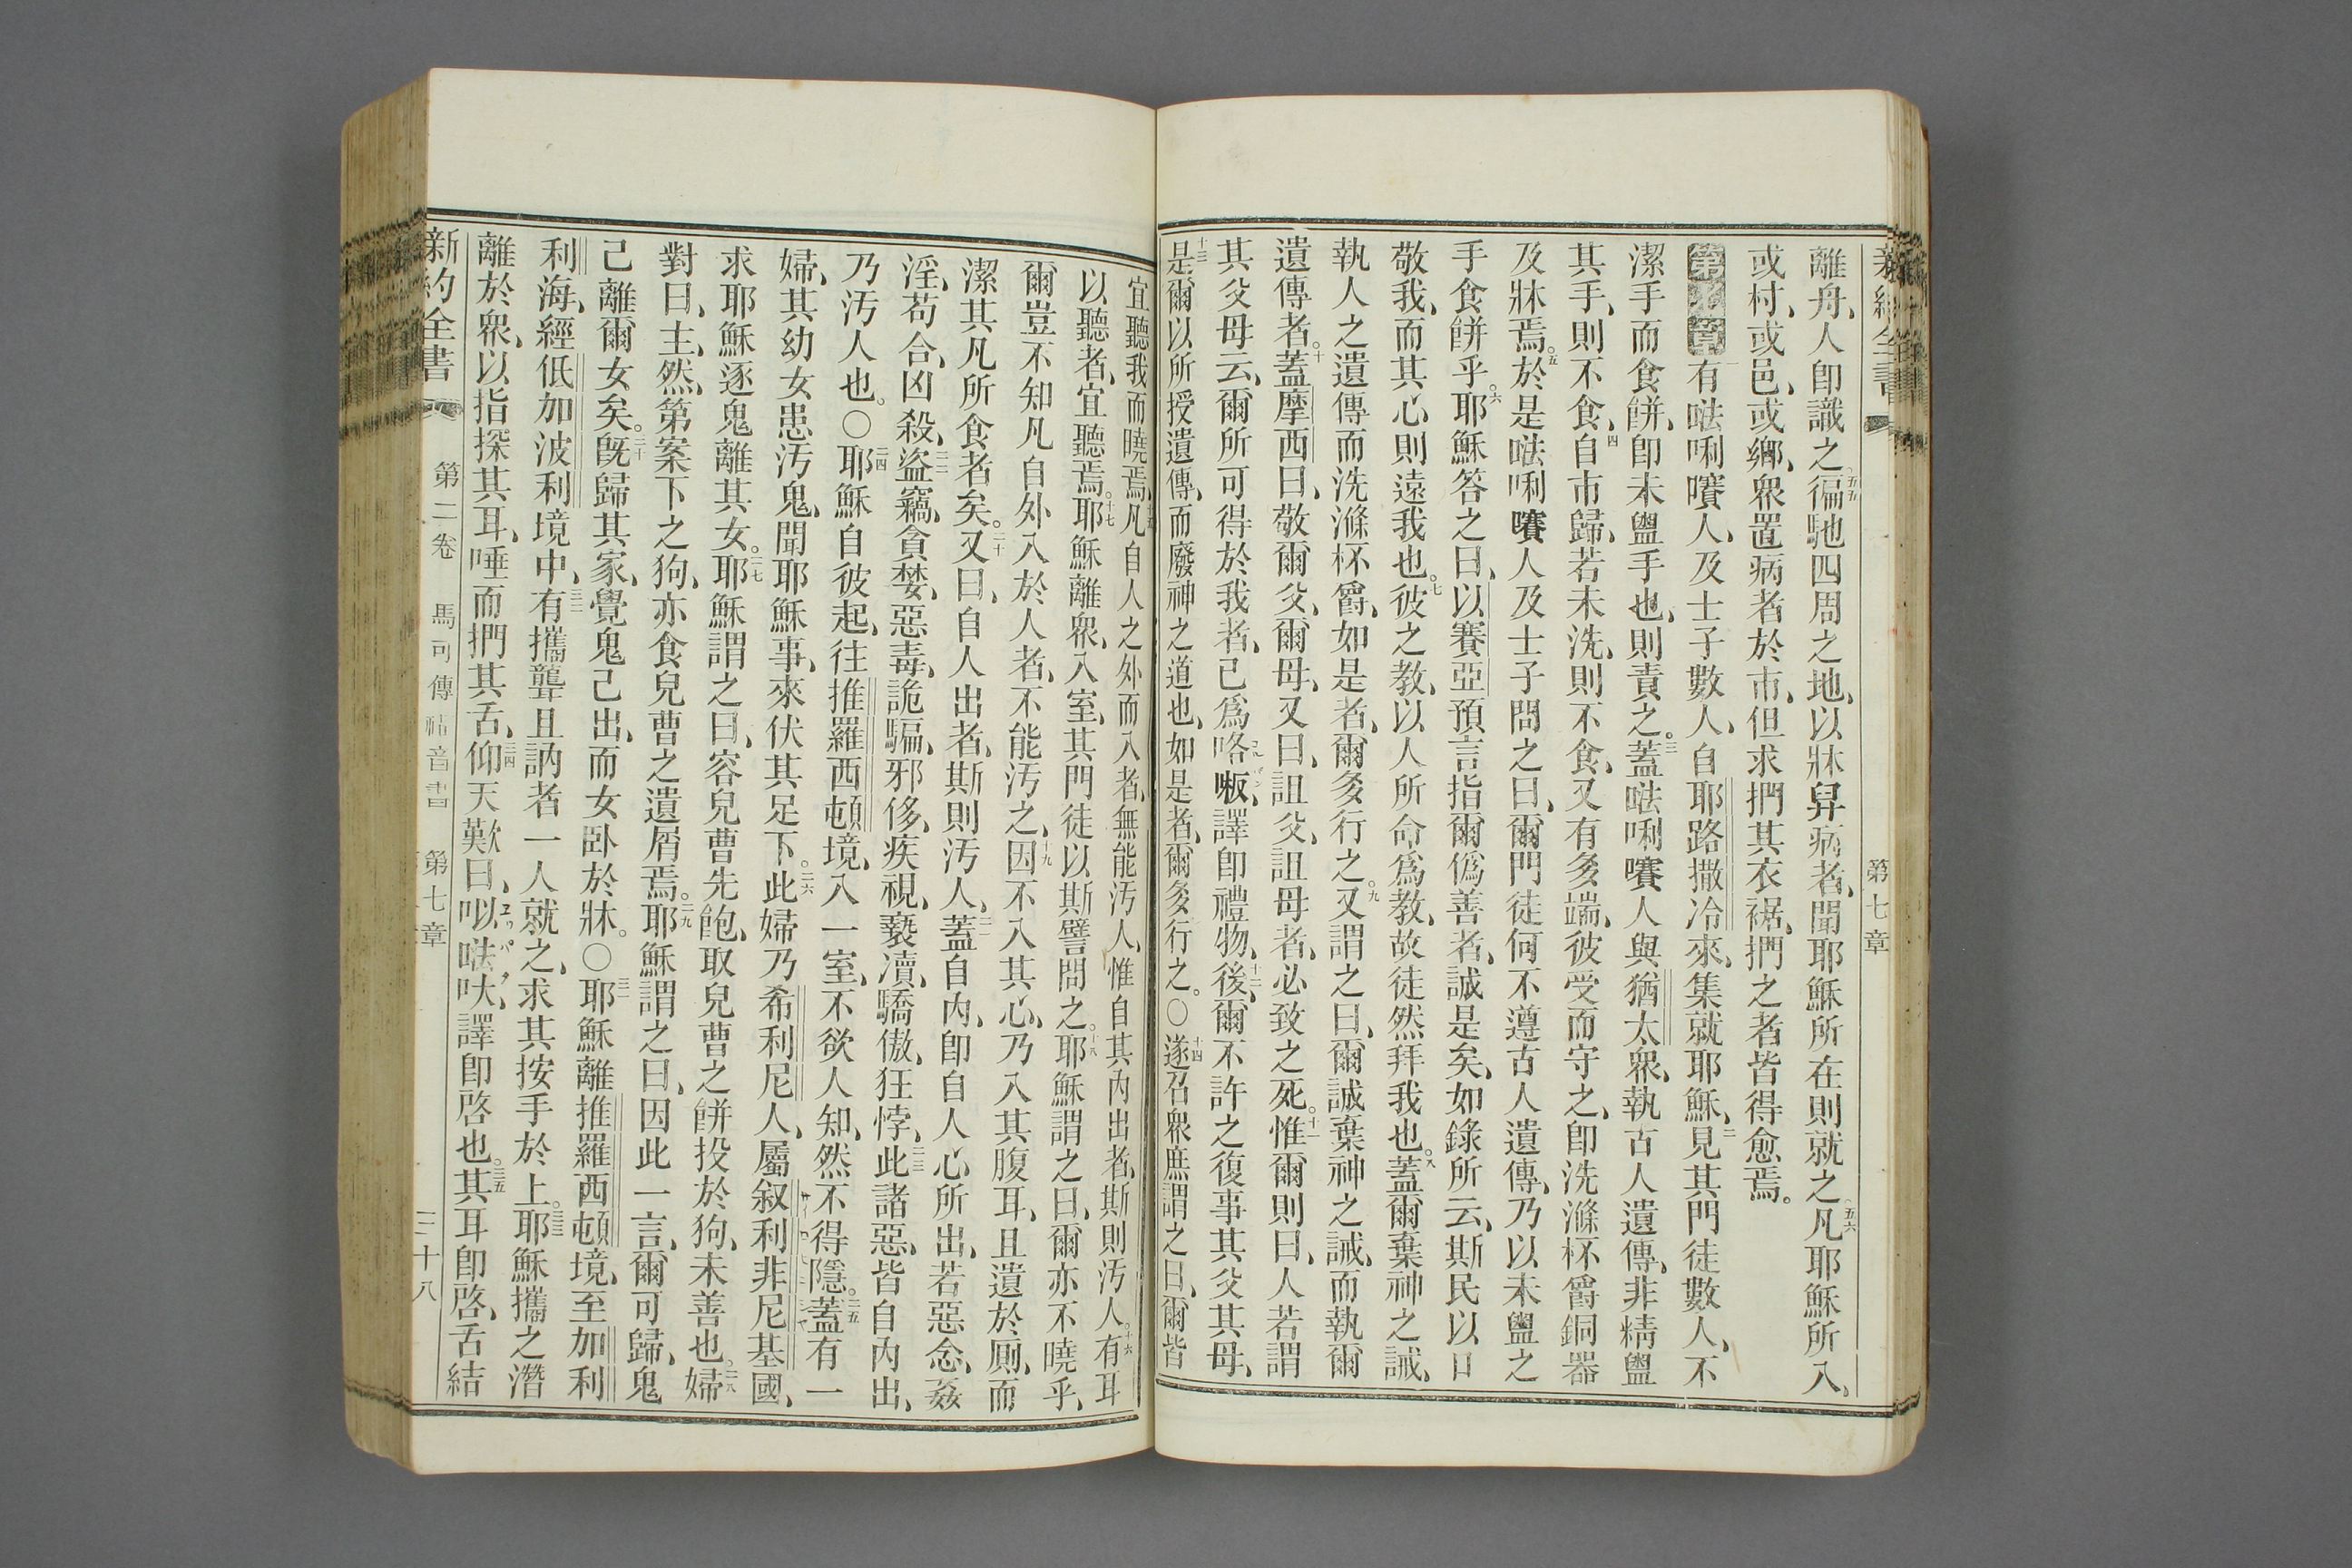 新約全書
第七章
離舟、人卽識之、五五徧馳四周之地、以牀舁病者、聞耶穌所在則就之、五六凡耶穌所入、
或村、或邑、或鄉、衆置病者於市、但求捫其衣裾、捫之者皆得愈焉。
第七章 一有𠵽唎㘔人、及士子數人、自耶路撒冷來、集就耶穌、二見其門徒數人、不
潔手而食餅、卽未盥手也、則責之。三蓋𠵽唎㘔人與猶太衆、執古人遺傳、非精盥
其手、則不食、四自市歸、若未洗、則不食、又有多端、彼受而守之、卽洗滌杯爵銅器
及牀焉。五於是𠵽唎㘔人及士子問之曰、爾門徒何不遵古人遺傳、乃以未盥之
手食餅乎。六耶穌答之曰、以賽亞預言指爾僞善者、誠是矣、如錄所云、斯民以口
敬我、而其心則遠我也。七彼之教、以人所命爲教、故徒然拜我也。八蓋爾棄神之誡、
執人之遺傳而洗滌杯爵、如是者、爾多行之。九又謂之曰、爾誠棄神之誡、而執爾
遺傳者。十蓋摩西曰、敬爾父、爾母、又曰、詛父、詛母者、必致之死。十一惟爾則曰、人若謂
其父母云、爾所可得於我者、已爲咯㗑、譯卽禮物、十二後爾不許之復事其父其母、
十三是爾以所授遺傳、而廢神之道也、如是者、爾多行之。〇十四遂召衆庶謂之曰、爾皆
宜聽我而曉焉、十五凡自人之外而入者、無能污人、惟自其內出者、斯則污人。十六有耳
以聽者、宜聽焉。十七耶穌離衆、入室、其門徒以斯譬問之。十八耶穌謂之曰、爾亦不曉乎、
爾豈不知凡自外入於人者、不能污之、十九因不入其心、乃入其腹耳、且遺於厠、而
潔其凡所食者矣。二十又曰、自人出者、斯則污人、二一蓋自內、卽自人心所出、若惡念、姦
淫、苟合、凶殺、二二盜竊、貪婪、惡毒、詭騙、邪侈、疾視、褻瀆、驕傲、狂悖、二三此諸惡、皆自內出、
乃污人也。〇二四耶穌自彼起、往推羅西頓境、入一室、不欲人知、然不得隱。二五蓋有一
婦、其幼女患污鬼、聞耶穌事、來伏其足下。二六此婦乃希利尼人、屬叙利非尼基國、
求耶穌逐鬼離其女。二七耶穌謂之曰、容兒曹先飽、取兒曹之餅投於狗、未善也。二八婦
對曰、主、然、第案下之狗、亦食兒曹之遺屑焉。二九耶穌謂之曰、因此一言、爾可歸、鬼
已離爾女矣。三十旣歸其家、覺鬼已出、而女卧於牀。〇三一耶穌離推羅西頓境、至加利
利海、經低加波利境中、三二有攜聾且訥者一人就之、求其按手於上。三三耶穌攜之潛
離於衆、以指探其耳、唾而捫其舌、三四仰天歎曰、㕽𠵽吠、譯卽啓也。三五其耳卽啓、舌結
新約全書 第二卷 馬可傳福音書 第七章 三十八